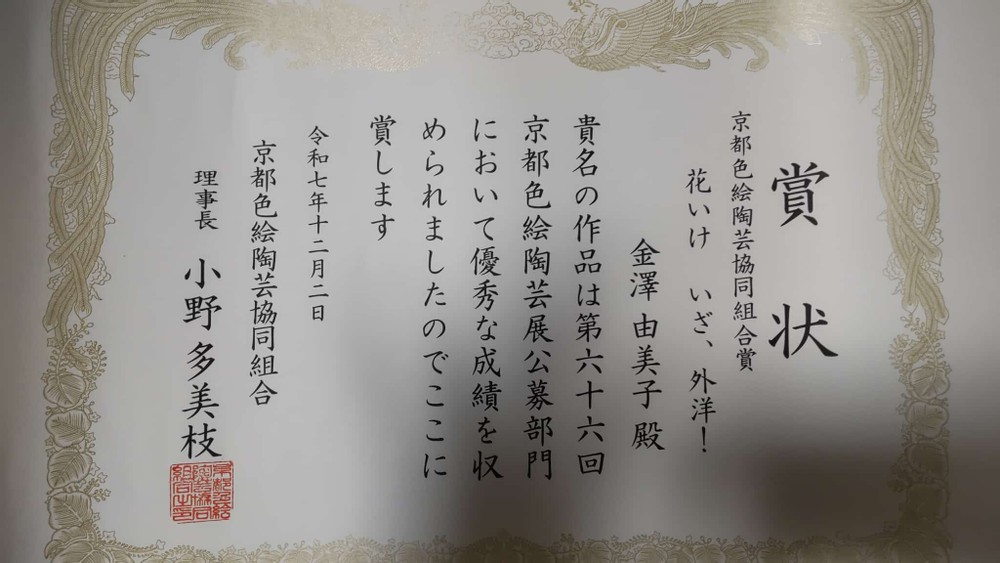 賞状
京都色絵陶芸協同組合賞
花いけ　いざ、外洋！
金澤由美子殿
貴名の作品は第六十六回
京都色絵陶芸展公募部門
において優秀な成績を収
められましたのでここに
賞します
令和七年十二月二日
京都色絵陶芸協同組合
理事長　小野多美枝